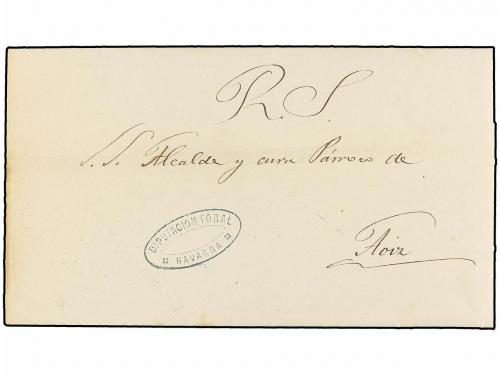 R. S.
S. S. Alcalde y cura Párroco de
DIPUTACION FORAL
¤ NAVARRA ¤
Aoiz